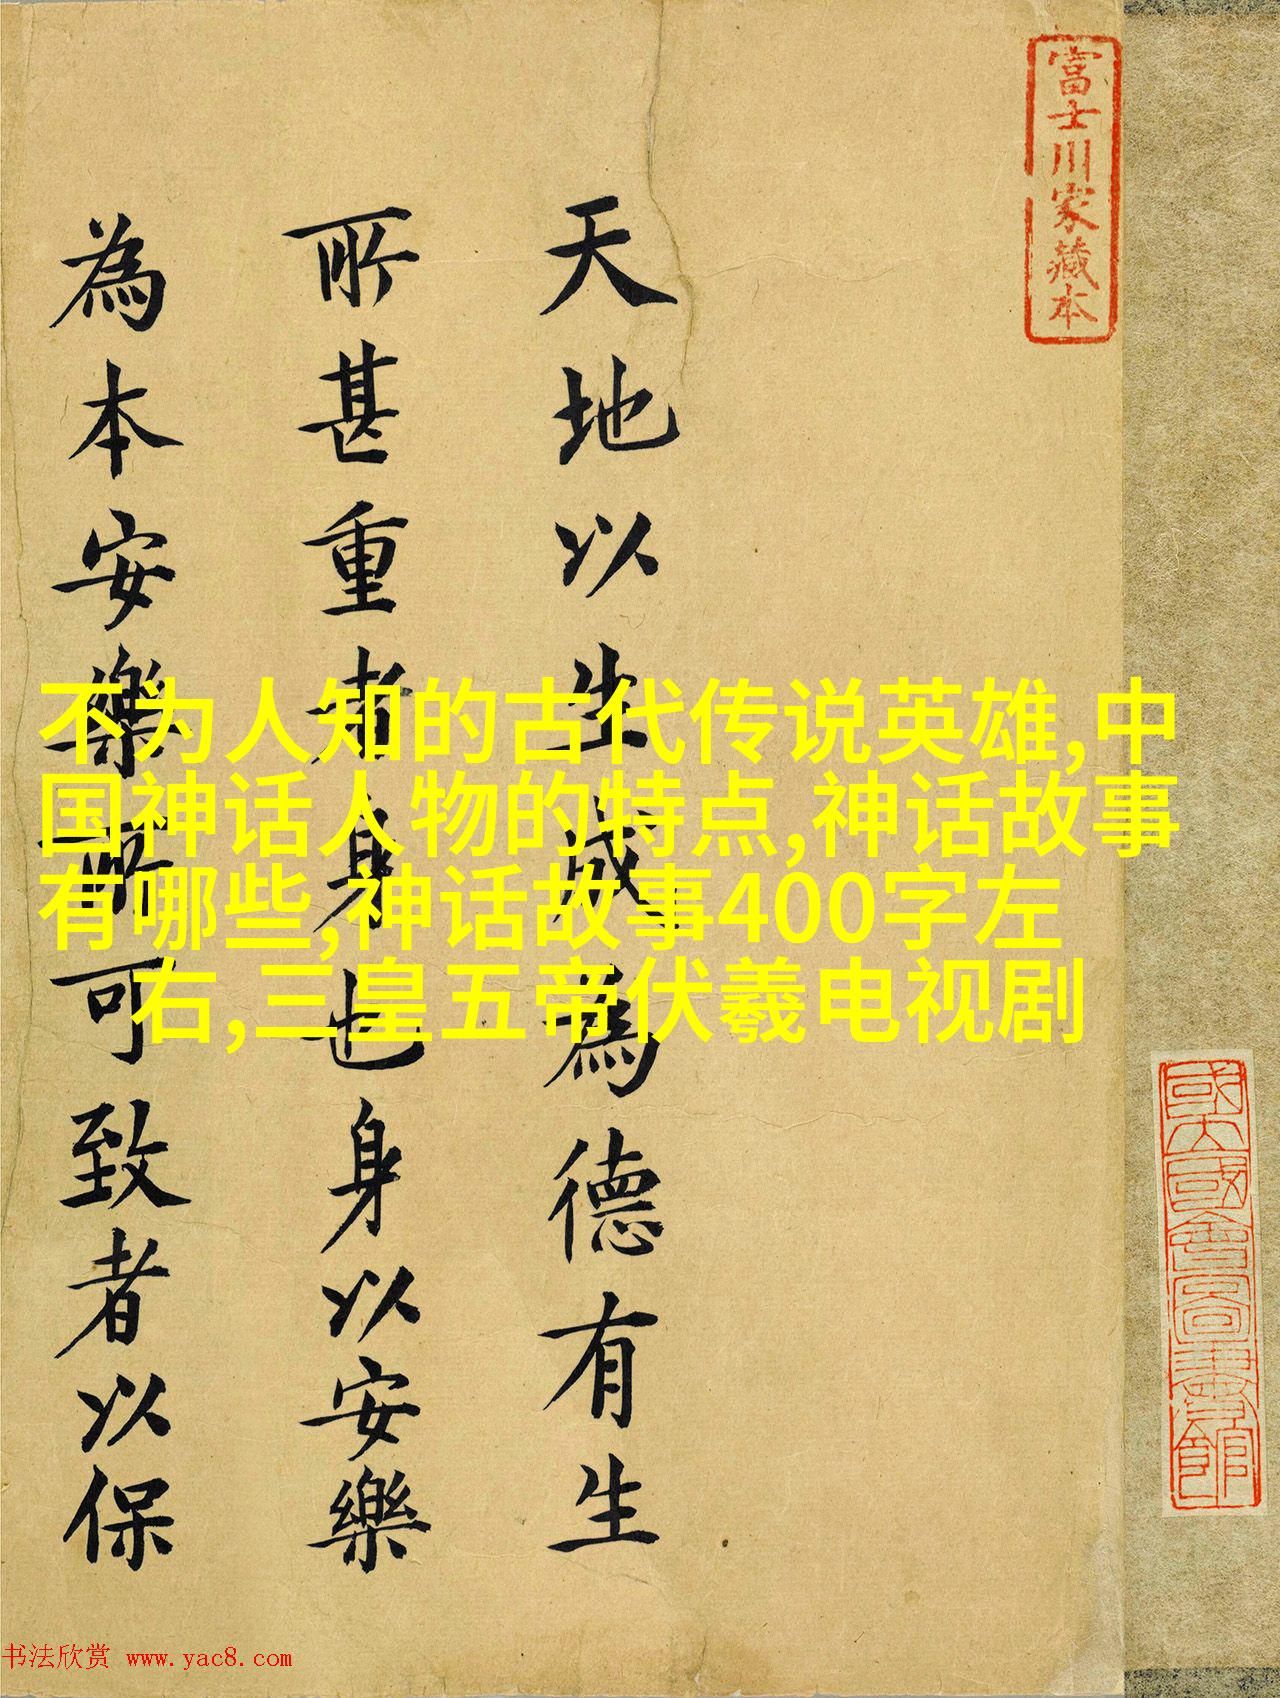 富士川家藏本
天地以生成為德有生
所甚重者身也身以安樂
為本安樂所可致者以保
不为人知的古代传说英雄,中
国神话人物的特点,神话故事
有哪些,神话故事400字左
右,三皇五帝伏羲电视剧
书法欣赏 www.yac8.com